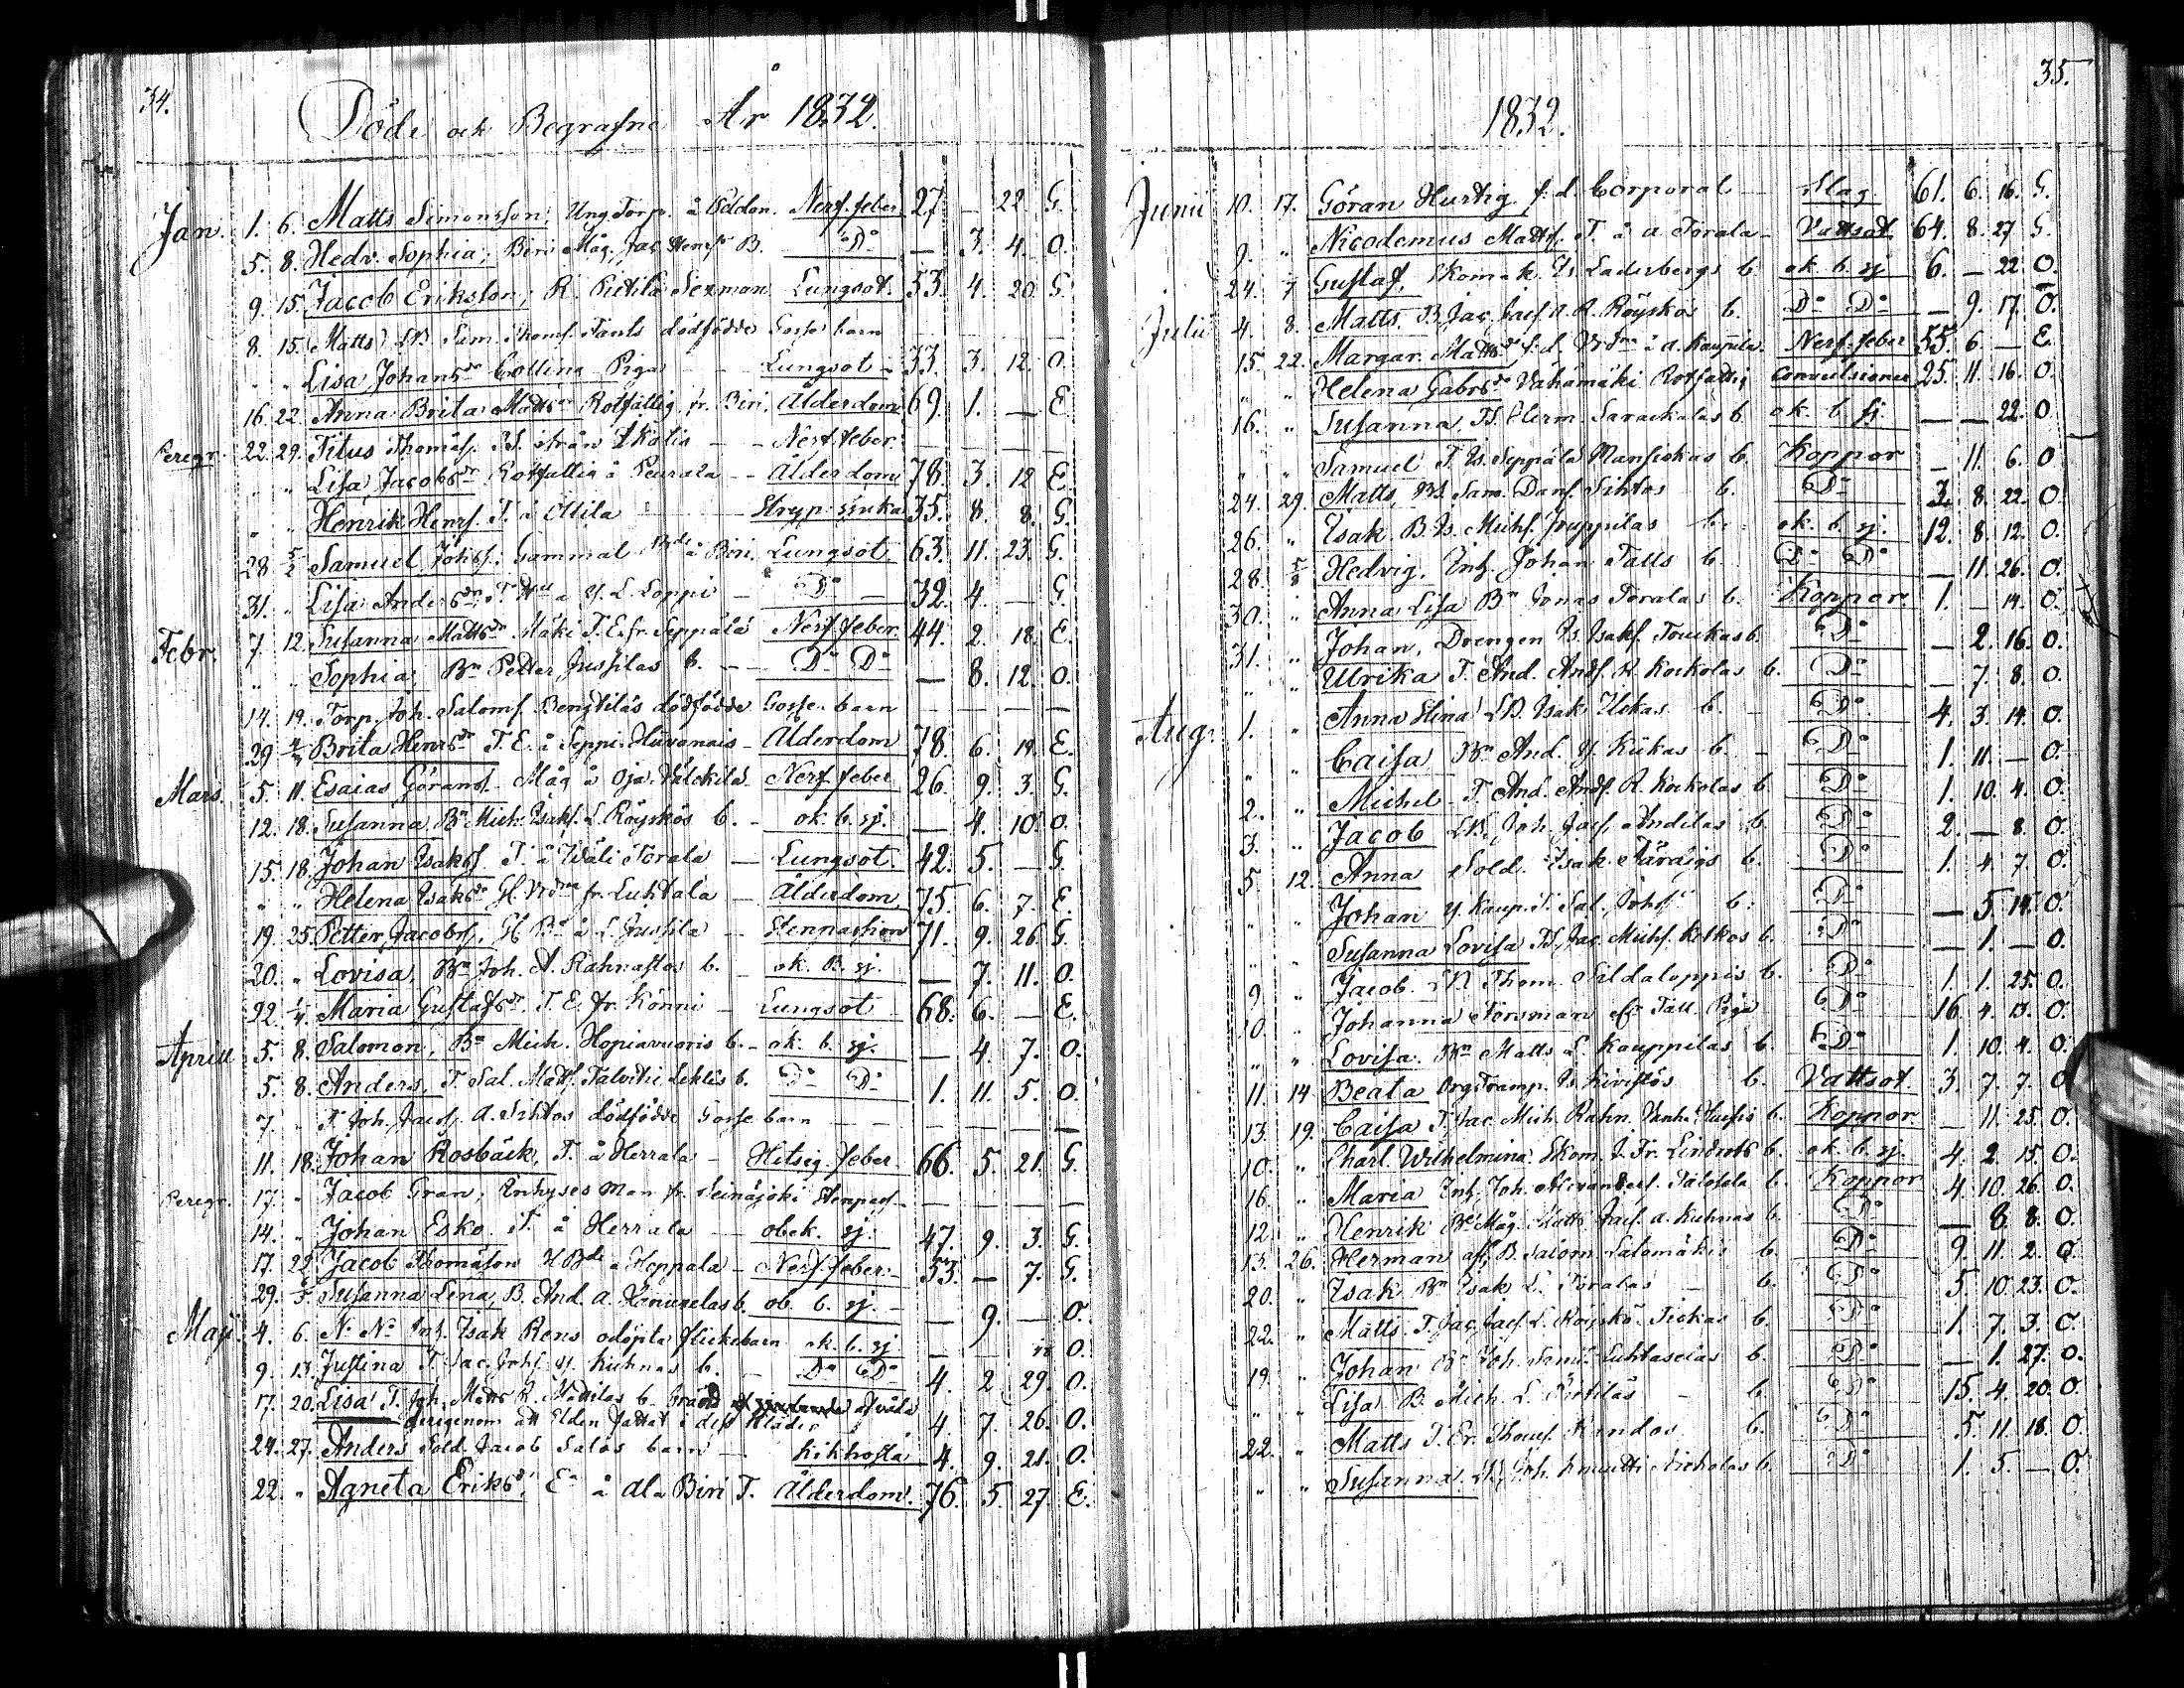 34.
Döde och Begrafne År 1832.
Jan. 1. 6. Matts Simonsson, Ung. Torp. å Peldon. Nerf. feber 27 — 22 G.
5. 8. Hedv. Sophia, Biri Måg, Jac. Henrs. B. Do — 3. 4. O.
9. 15. Jacob Eriksson, R. Pietilä Sexman Lungsot. 53. 4. 20. G.
8. 15. (Matts) Sam. Thoms. dödfödde Gosse barn
" " Lisa Johansdr Collina Piga — Lungsot — 33. 3. 12. O.
16. 22. Anna Brita Mattsdr Rotfattig fr. Biri. Ålderdom 69. 1. — E.
Peregr. 22. 29. Titus Thomass. från — Nerf. feber. — — —
" " Lisa Jacobsdr Rotfattig å Peurala — Ålderdom 78. 3. 12 E.
" " Henrik Henrs. T. å Ollila — Stryp sjuka 35. 8. 8. G.
28 5/2 Samuel Johss. Gammal å Biri. Lungsot 63. 11. 23. G.
31. " Lisa Andersdr T. å Y. L. Loppi — Do — 32. 4. — G.
Febr. 7. 12. Susanna Mattsdr Mäki T. E. fr. Seppälä Nerf. feber 44. 2. 18. E.
" " Sophia, Bn Petter Jussilas b. — Do Do — 8. 12. O.
14. 19. Torp. Joh. Saloms. Bengtiläs dödfödde Gosse barn — — —
29 4/3 Brita Henrsdr T. E. å Seppi Hiivanais — Ålderdom 78. 6. 19. E.
Mars. 5. 11. Esaias Görans. Måg å Oja Välckilä Nerf. feber 26. 9. 3. G.
12. 18. Susanna Bn Mich. Isaks. L. Röyskös b. — ok. b. sj. — 4. 10. O.
15. 18. Johan Isaks. T. å Wäli Torala — Lungsot. 42. 5. — G.
" " Helena Isaksdr fr. Luhtala — Ålderdom 75. 6. 7. E.
19. 25. Petter Jacobs. Gl. Bn å L. Jussila — Stenpassion 71. 9. 26 G.
20. " Lovisa, Bn Joh. A. Rahnastos b. — ok. B. sj. — 7. 11. O.
22. 1/4. Maria Gustafsdr. T. E. fr. Könni — Lungsot — 68. 6. — E.
Aprill 5. 8. Salomon, Bn Mich. Hopiavuoris b. — ok. b. sj. — 4. 7. O.
5. 8. Anders, T. Sal. Matts. Talvitie b. Do Do 1. 11. 5. O.
7. " T. Joh. Jacs. A. Sihtos dödfödde Gosse barn — — —
11. 18. Johan Rosbäck, T. å Herrala — Hitsig feber. 66. 5. 21. G.
Peregr. 17. " Jacob Gran, Inhyses Man fr. Seinäjoki Stenpass. — — —
14. " Johan Esko. T. å Herrala — obek. sj. 47. 9. 3. G.
17. 22 Jacob Thomasson å Hoppala — Nerf. feber. — 53. — 7. G.
29. 6/5 Susanna Lena, B. And. A. Hanuxelas b. ob. b. sj. — — 9. — O.
Maji. 4. 6. N. No Inh. Isak Rens odöpta flickebarn ok. b. sj — — O.
9. 13. Justina T. Jac. Johs. Y. Kuhnas b. Do Do 4. 2. 29. O.
17. 20. Lisa T. Joh. Matts R. Mattilas b. bränd
derigenom att Elden fattat i dess Kläder 4. 7. 26. O.
24. 27. Anders Sold. Jacob Salos barn — Kikhosta 4. 9. 21. O.
22. " Agneta Eriksdr, Ea å Ala Biri T. Ålderdom. 76. 5. 27. E.
35.
1832.
Junii 10. 17. Göran Hurtig f. d. Corporal — Slag. 61. 6. 16. G.
9. " Nicodemus Matts. T. å A. Torala — Vattsot 64. 8. 27 G.
24. 7 Gustaf, Skomak. Is. Laderbergs b. ok. b. sj 6. — 22. O.
Julii 4. 8. Matts. B. Jac. Jacs. A. R. Röyskös b. Do Do — 9. 17. O.
15. 22. Margar. Mattsdr f. d. å A. Kaupila. Nerf. feber 55. 6. — E.
" " Helena Gabrsdr Vähämäki Rotfattig Convulsioner 25. 11. 16. O.
16. " Susanna, B. Herm. Saraikalas b. ok. b. sj. — — 22. O.
" " Samuel T. Is. Seppälä Mansickas b. Koppor — 11. 6. O
24. 29. Matts, Sam. Dans. Sihtos b. Do 2. 8. 22. O.
26. " Isak. B. Is. Michs. Juppilas b. ok. b. sj. 12. 8. 12. O.
28. 5/8 Hedvig. Inh. Johan Talls b. Do Do — 11. 26. O.
30. " Anna Lisa Bn Jonas Toralas b. Koppor 1. — 14. O.
31. " Johan, Drengen Is. Isaks. Touckas b. Do — 2. 16. O.
" " Ulrika T. And. Ands. R. Kockolas b. Do — 7. 8. O.
Aug. 1. " Anna Stina Isak Ilkas b. — Do 4. 3. 14. O.
" " Caisa Bn And. Y. Kiikas b. — Do 1. 11. — O.
2. " Michel — T. And. Ands. R. Kockolas b Do 1. 10. 4. O.
3. " Jacob Joh. Jacs. Andilas b. Do 2. — 8. O.
5. 12. Anna Sold. Isak b. Do 1. 4. 7. O.
" " Johan Y. Kaup. T. Sal. Johs. b. Do — 5. 14. O.
" " Susanna Lovisa B. Jac. Michs. Ketkos b. Do — 1. — O.
9. " Jacob. Thom. Sildaloppis b. Do 1. 1. 25. O.
10. " Johanna Forsman fr. Tall. Piga Do 16. 4. 13. O.
" " Lovisa. Bn Matts L. Kauppilas b. Do 1. 10. 4. O.
11. 14 Beata Orgtramp. Is. Kivistös b. Vattsot 3. 7. 7. O
13. 19. Caisa T. Jac. Mich. Rahn. b. Koppor. — 11. 25. O.
10. " Charl. Wilhelmina. Skom. J. Fr. b. ok. b. sj. 4. 2. 15. O.
16. " Maria Inh. Joh. b. Koppor 4. 10. 26. O.
12. " Henrik Måg. Matts Jacs. A. Kuhnas b. Do — 8. 8. O.
13. 26. Herman B. Salom. Salomäkis b. Do 9. 11. 2. O.
20. " Isak Bn Isak L. Toralas — b. Do 5. 10. 23. O.
22. " Matts T. Jac. Jacs. L. Röyskö b. Do 1. 7. 3. O.
19. " Johan Bn Joh. b. Do — 1. 27. O.
" " Lisa B. Mich. L. Pietiläs — b. Do 15. 4. 20. O.
22. " Matts T. Er. b. Do 5. 11. 18. O.
" " Susanna. Joh. b. Do 1. 5. — O.